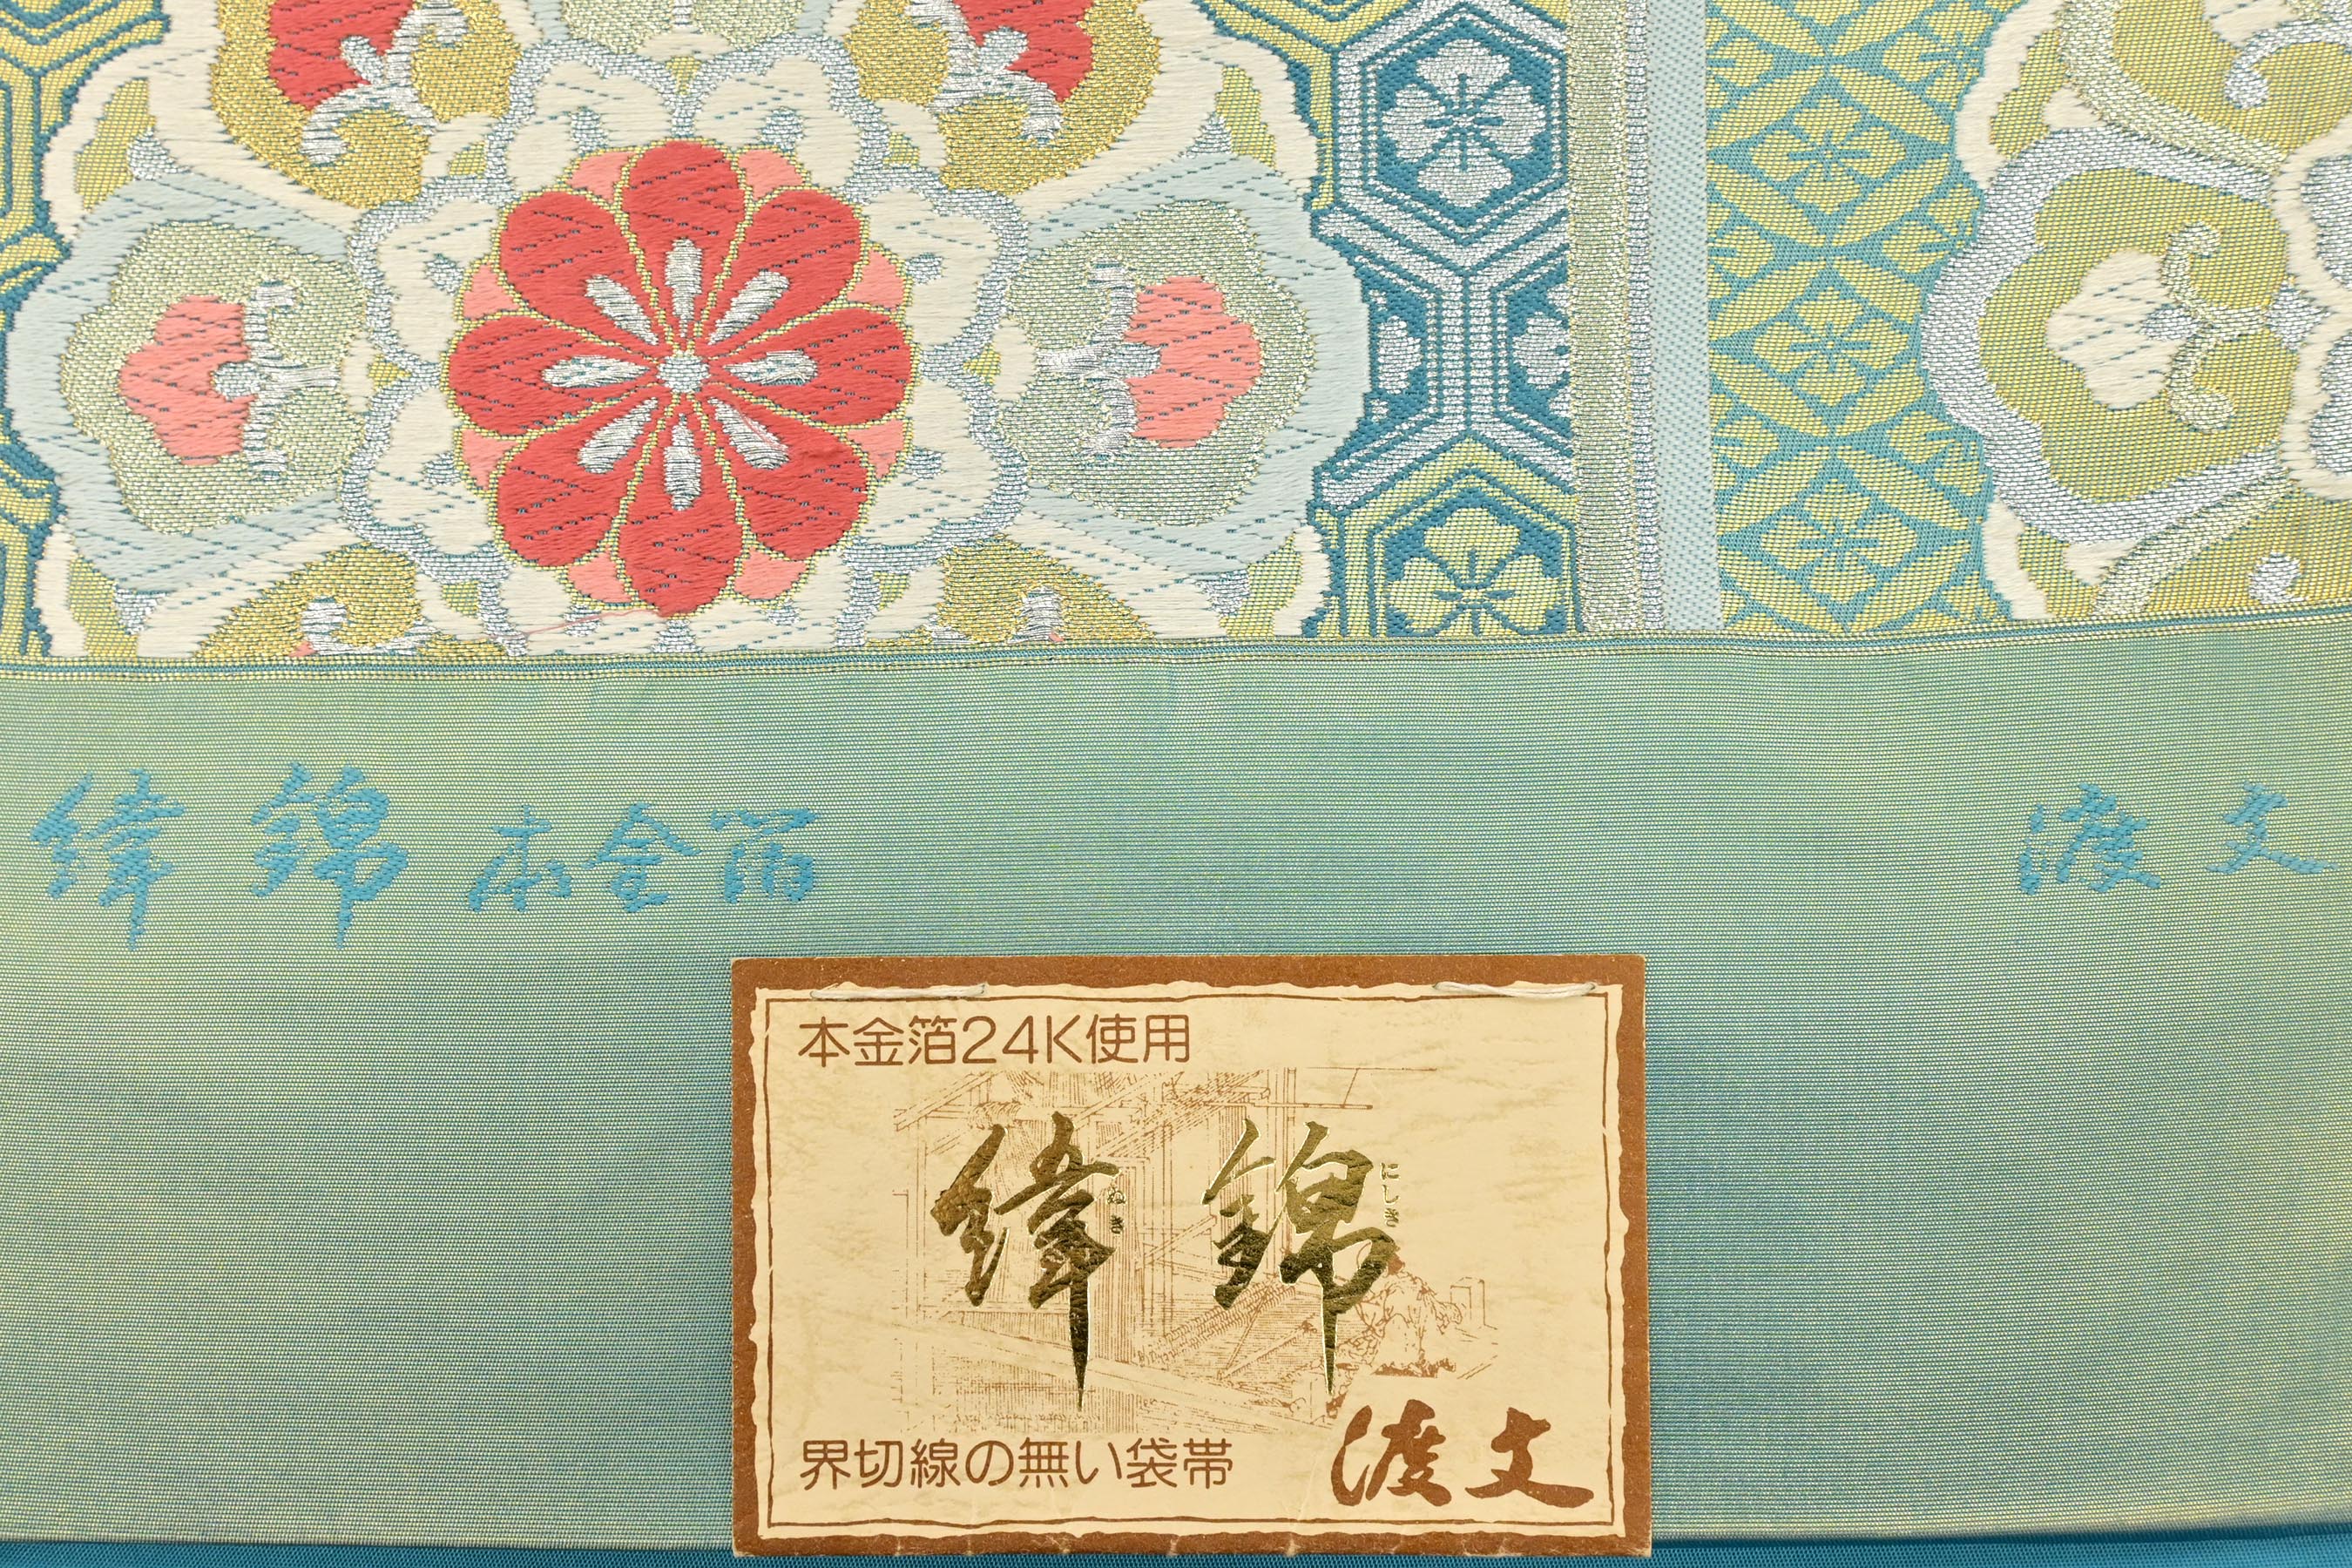 緯錦本金箔
渡文
本金箔24K使用
緯錦
ぬき
にしき
界切線の無い袋帯
渡文